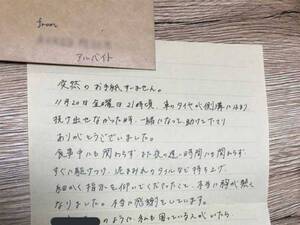 from
アルバイト
突然のお手紙すいません。
11月20日金曜日21時頃 車のタイヤが側溝にはまり
抜け出せなかった時、一緒になって助けて下さり
ありがとうございました。
食事中にも関わらず また夜の遅い時間にも関わらず
すぐに駆けつけ、泥まみれのタイルなど持ち上げ
細かく指示を仰いでくださったこと、本当に胸が熱く
なりました。本当に感謝をしています。
のように、私も困っている人がいたら